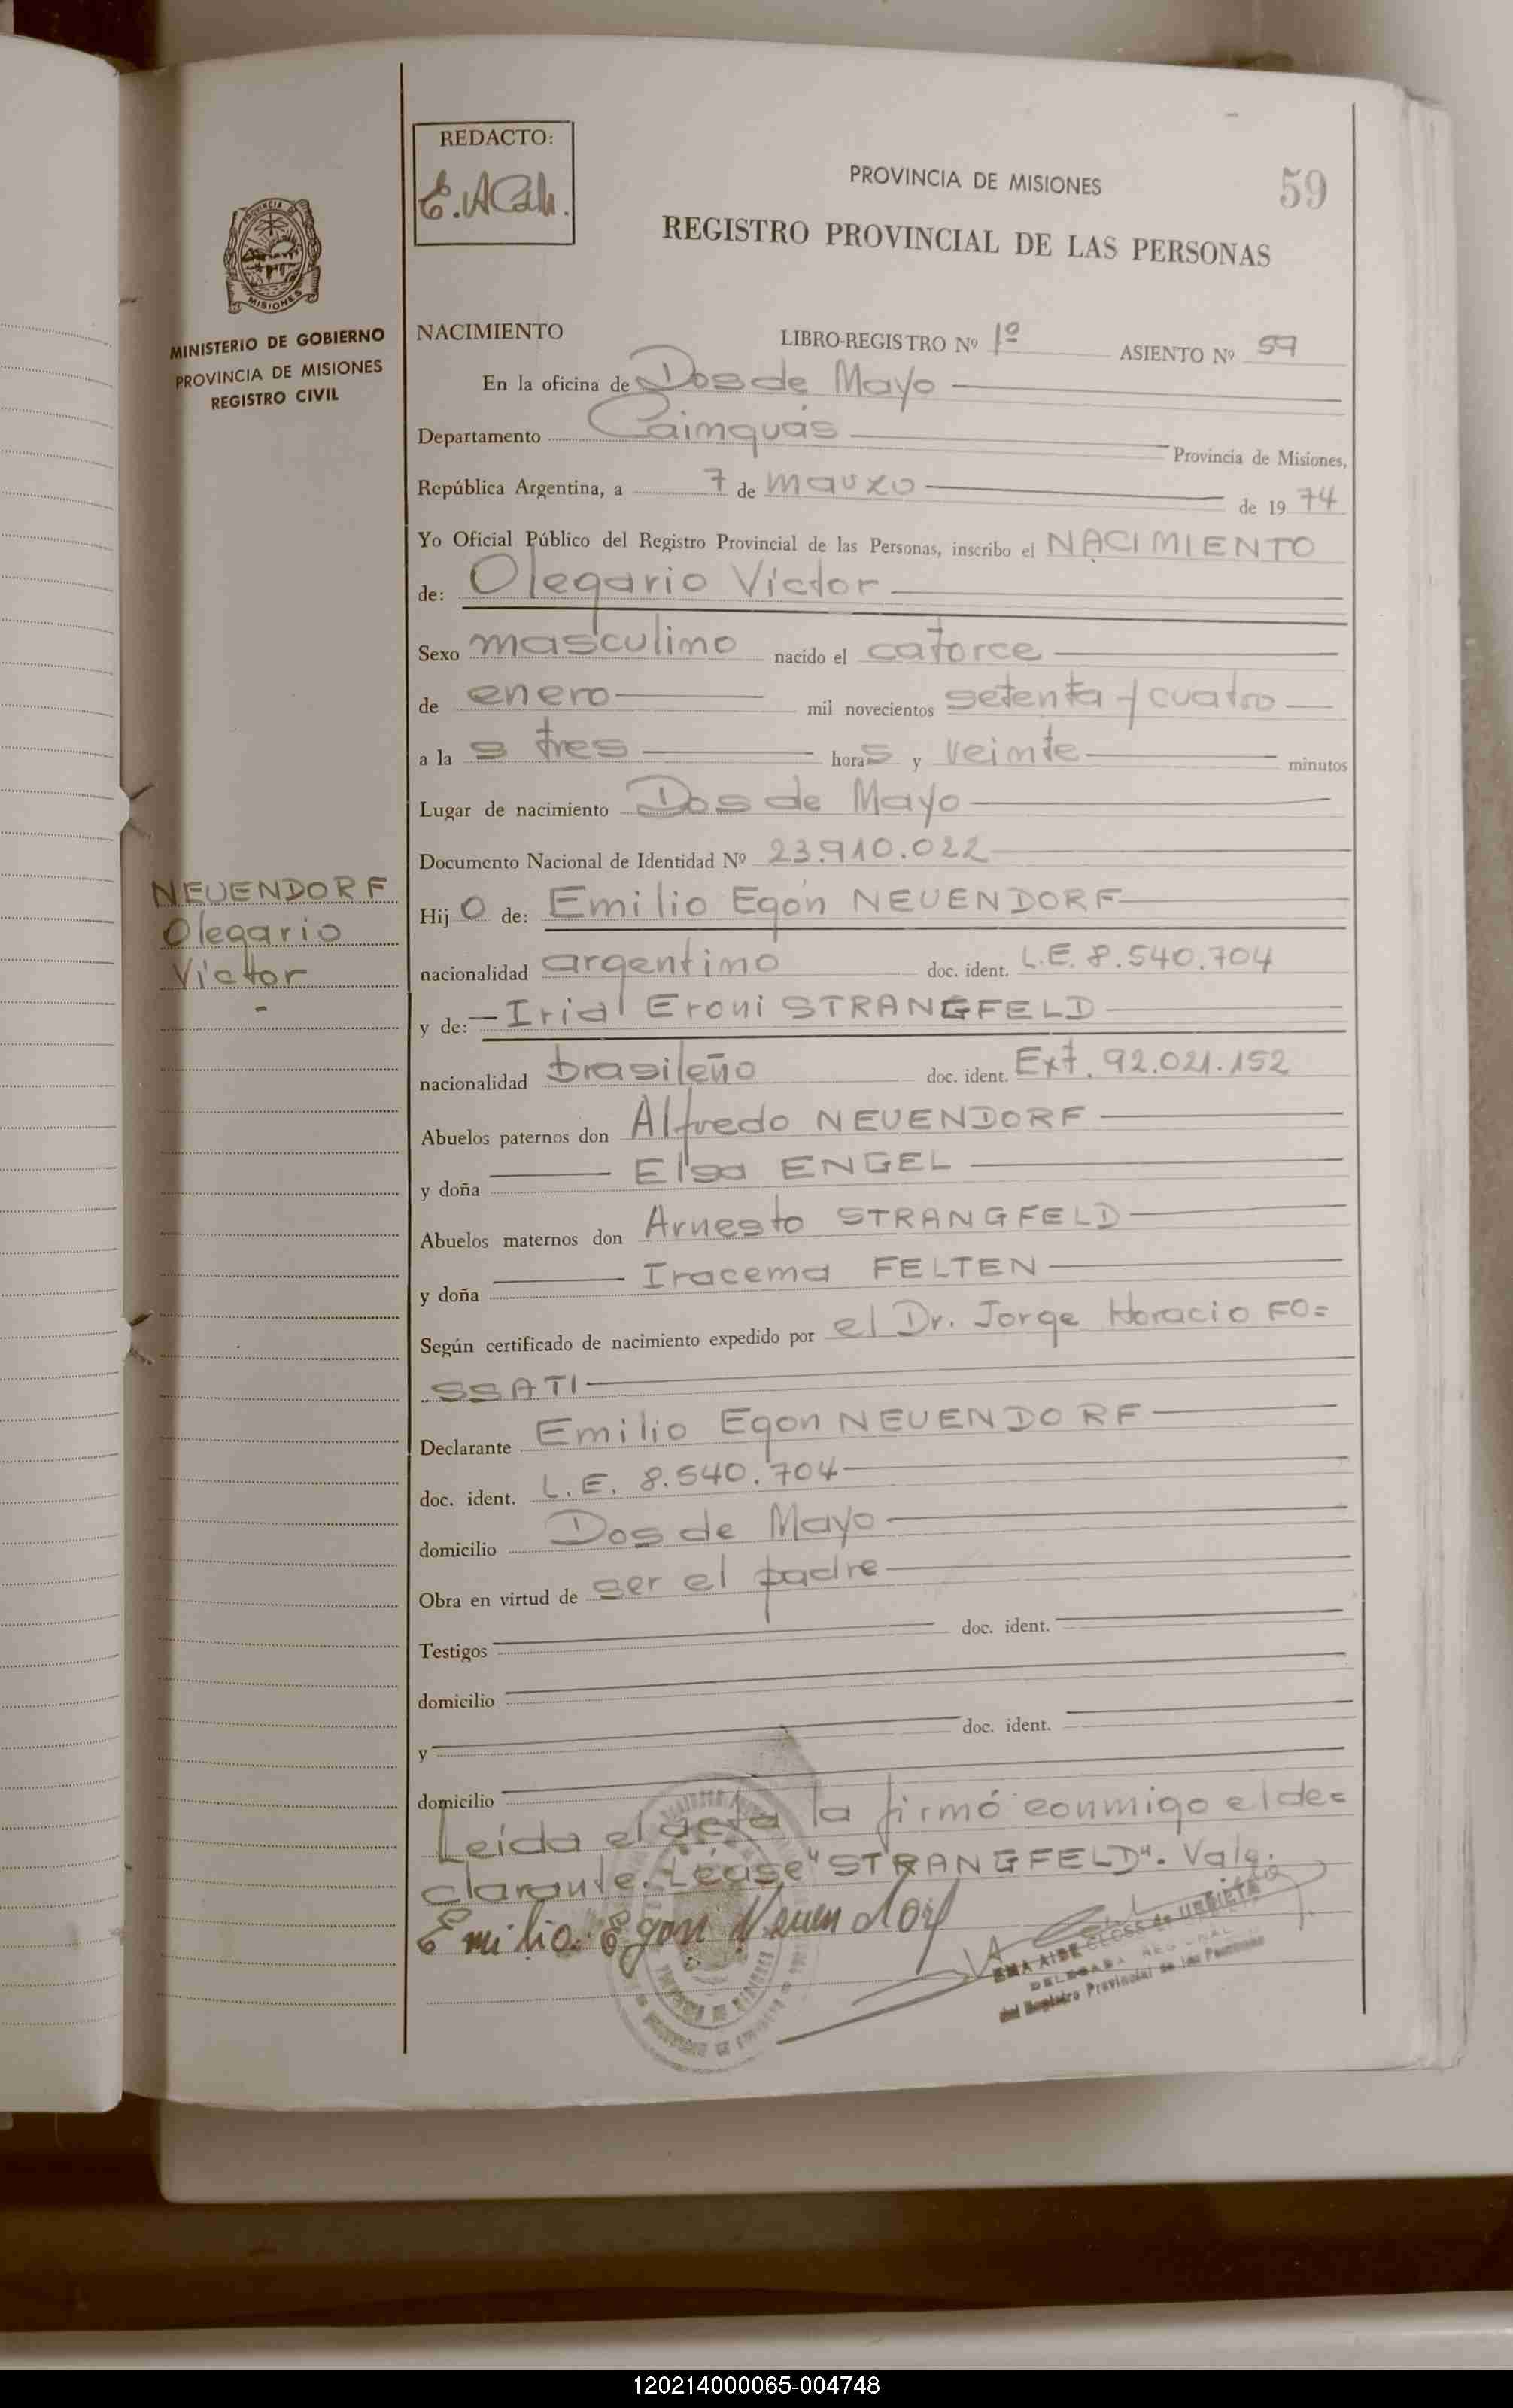 REDACTO:
E.ACah.
PROVINCIA DE MISIONES
59
REGISTRO PROVINCIAL DE LAS PERSONAS
PROVINCIA DE
MISIONES
MINISTERIO DE GOBIERNO
PROVINCIA DE MISIONES
REGISTRO CIVIL
NACIMIENTO LIBRO-REGISTRO Nº 1º ASIENTO Nº 59
En la oficina de Dos de Mayo
Departamento Cainguás Provincia de Misiones,
República Argentina, a 7 de marzo de 19 74
Yo Oficial Público del Registro Provincial de las Personas, inscribo el NACIMIENTO
de: Olegario Víctor
Sexo masculino nacido el catorce
de enero mil novecientos setenta y cuatro
a la s tres horas y veinte minutos
Lugar de nacimiento Dos de Mayo
Documento Nacional de Identidad Nº 23.910.022
NEUENDORF
Olegario
Víctor
Hij o de: Emilio Egon NEUENDORF
nacionalidad argentino doc. ident. L.E. 8.540.704
y de: Irial Eroni STRANGFELD
nacionalidad brasileño doc. ident. Ext. 92.021.152
Abuelos paternos don Alfredo NEUENDORF
y doña Elsa ENGEL
Abuelos maternos don Arnesto STRANGFELD
y doña Iracema FELTEN
Según certificado de nacimiento expedido por el Dr. Jorge Horacio FO=
SSATI
Declarante Emilio Egon NEUENDORF
doc. ident. L.E. 8.540.704
domicilio Dos de Mayo
Obra en virtud de ser el padre
Testigos doc. ident.
domicilio
y doc. ident.
domicilio
Leída el acta la firmó conmigo el de=
clarante. Léase "STRANGFELD". Vale.
Emilio Egon Neuendorf
EMA AIDE CLOSS de URBIETA
DELEGADA REGIONAL
del Registro Provincial de las Personas
120214000065-004748